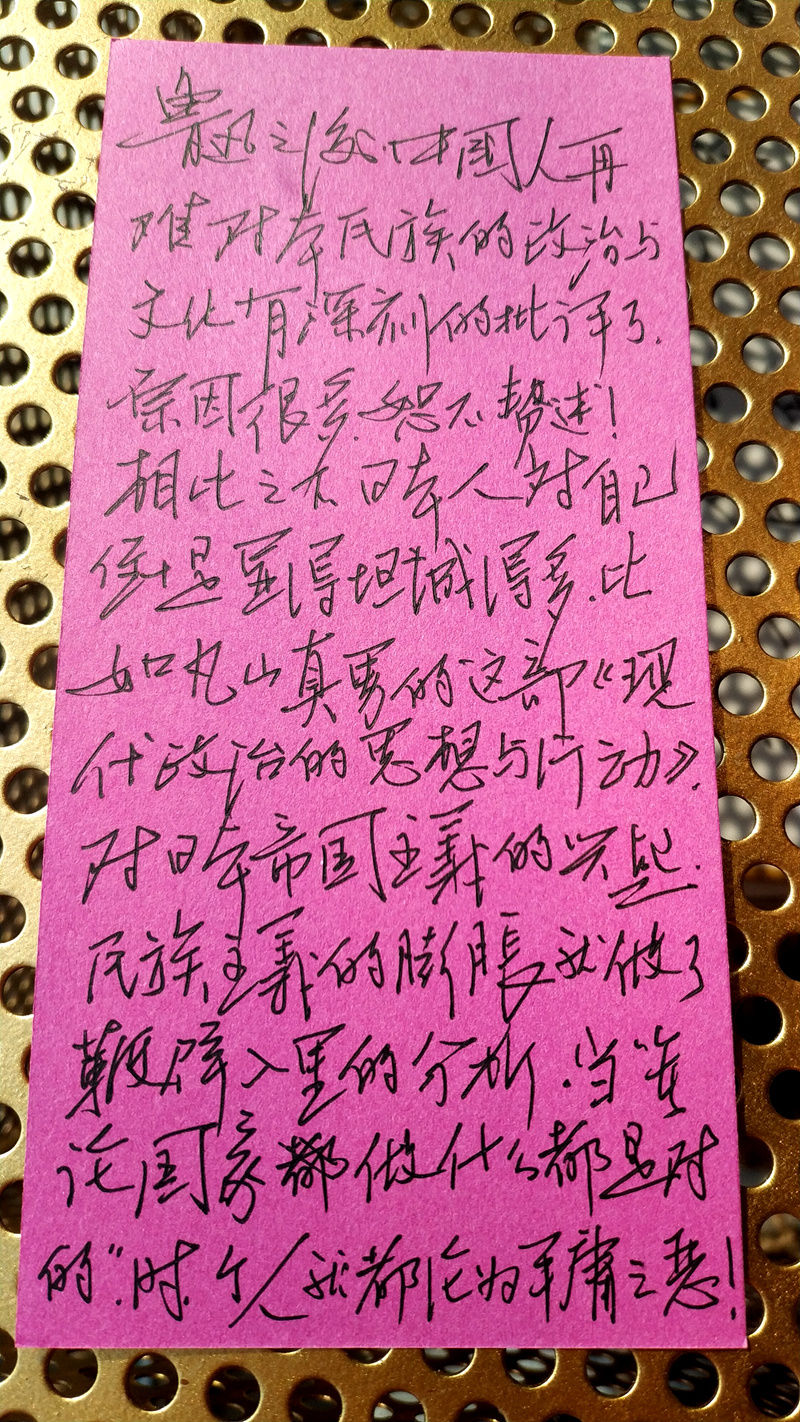 鲁迅之后，中国人再
难对本民族的政治与
文化有深刻的批评了．
原因很多．恕不赘述！
相比之下日本人对自己
倒是显得坦诚得多．比
如丸山真男的这部《现
代政治的思想与行动》．
对日本帝国主義的兴起．
民族主義的膨脹就做了
鞭辟入里的分析．当"
国家都做什么都是对
的"．时．个人就都沦为平庸之恶！